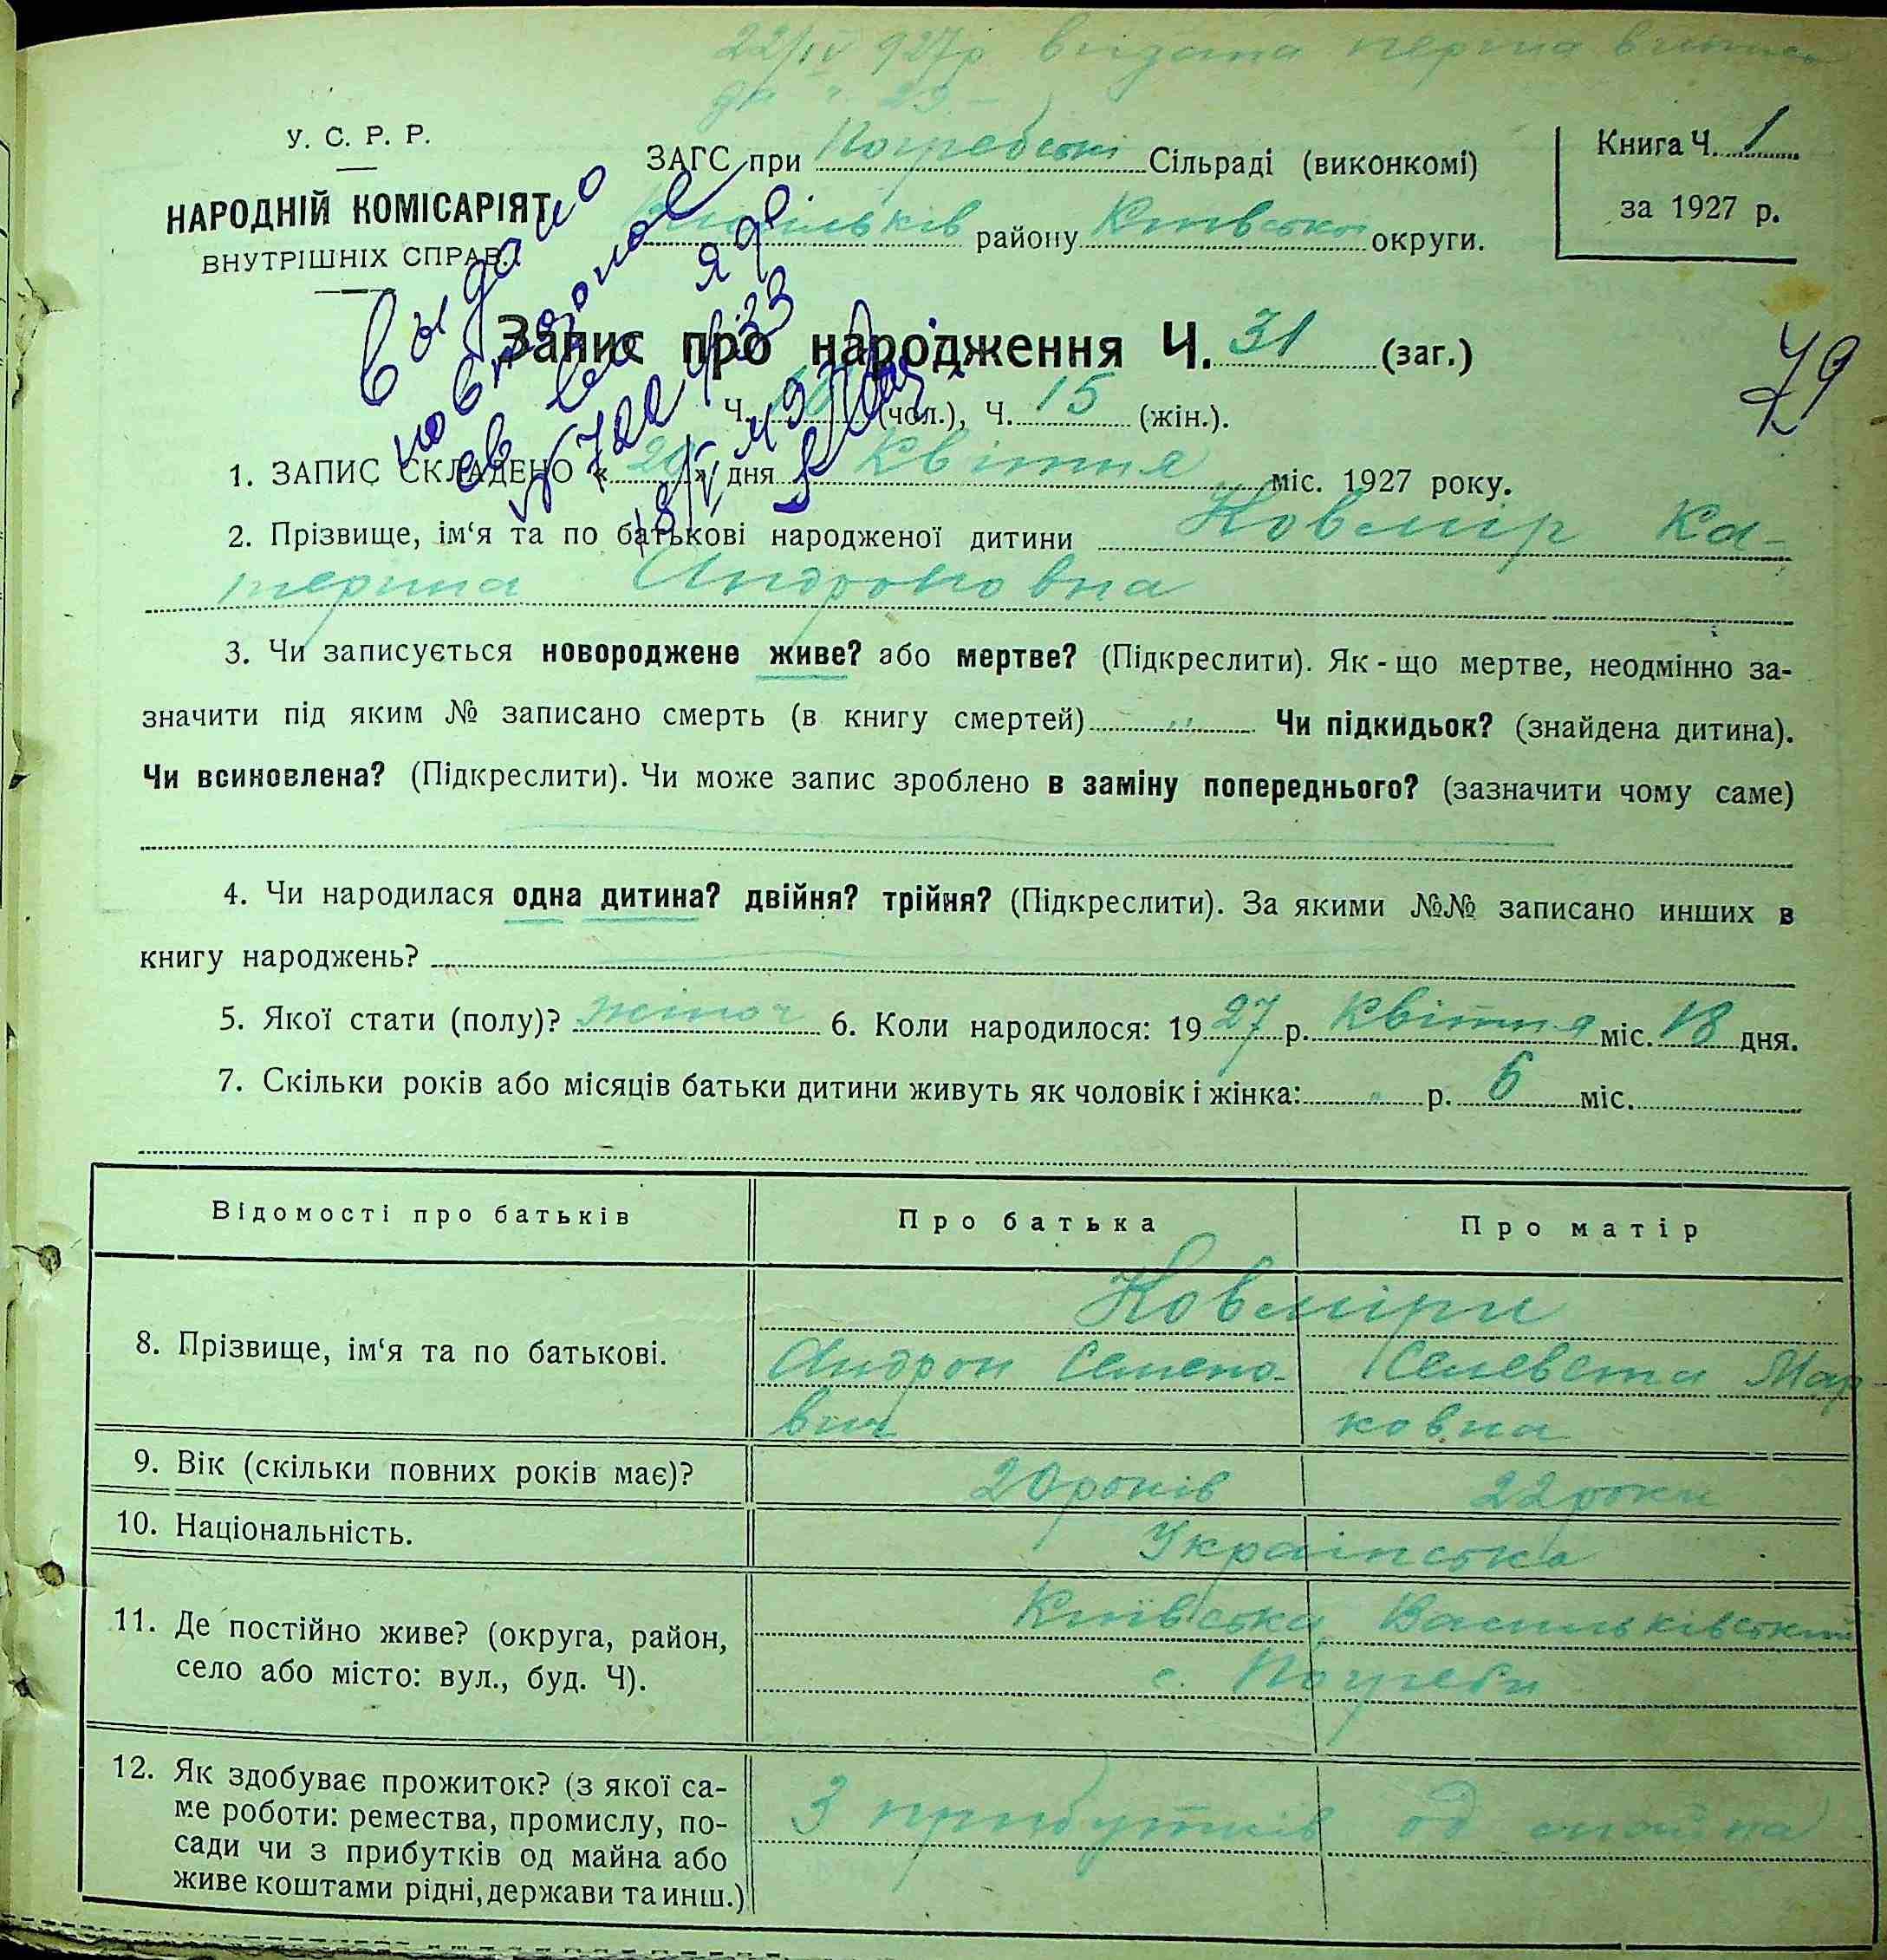 22/IV 927р видана перша випись
за № 29 –
У. С. Р. Р.
НАРОДНІЙ КОМІСАРІЯТ
ВНУТРІШНІХ СПРАВ.
ЗАГС при Погребській Сільраді (виконкомі)
Васильків району Київської округи.
Книга Ч. 1
за 1927 р.
Выдано
повторное
св во
Запис про народження Ч. 31 (заг.)
79
Ч. 16 (чол.), Ч. 15 (жін.).
1. ЗАПИС СКЛАДЕНО « 20 » дня Квітня міс. 1927 року.
2. Прізвище, ім‘я та по батькові народженої дитини Ковмір Ка-
терина Андроновна
3. Чи записується новороджене живе? або мертве? (Підкреслити). Як-що мертве, неодмінно за-
значити під яким № записано смерть (в книгу смертей) Чи підкидьок? (знайдена дитина).
Чи всиновлена? (Підкреслити). Чи може запис зроблено в заміну попереднього? (зазначити чому саме)
4. Чи народилася одна дитина? двійня? трійня? (Підкреслити). За якими №№ записано инших в
книгу народжень?
5. Якої стати (полу)? жіноч 6. Коли народилося: 1927 р. Квітня міс. 18 дня.
7. Скільки років або місяців батьки дитини живуть як чоловік і жінка: „ р. 6 міс.
Відомості про батьків Про батька Про матір
Ковміри
8. Прізвище, ім‘я та по батькові. Андрон Семено- Селевета Мар-
вич ковна
9. Вік (скільки повних років має)? 20 років 22 роки
10. Національність. Українська
11. Де постійно живе? (округа, район, Київська, Васильківський
село або місто: вул., буд. Ч). с. Погреби
12. Як здобуває прожиток? (з якої са-
ме роботи: ремества, промислу, по- З прибутків од майна
сади чи з прибутків од майна або
живе коштами рідні, держави та инш.)